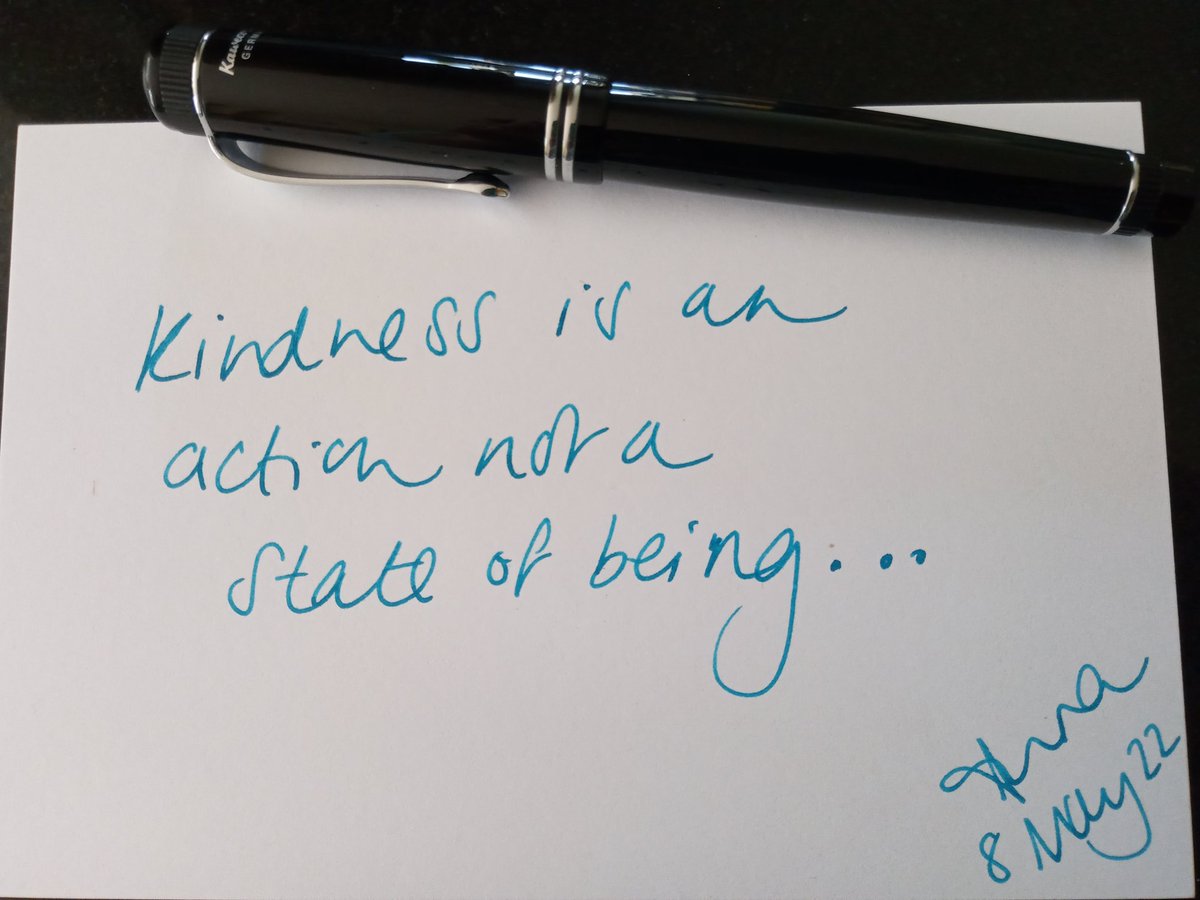 Kaweco
GERM
Kindness is an
action not a
state of being...
8 May 22